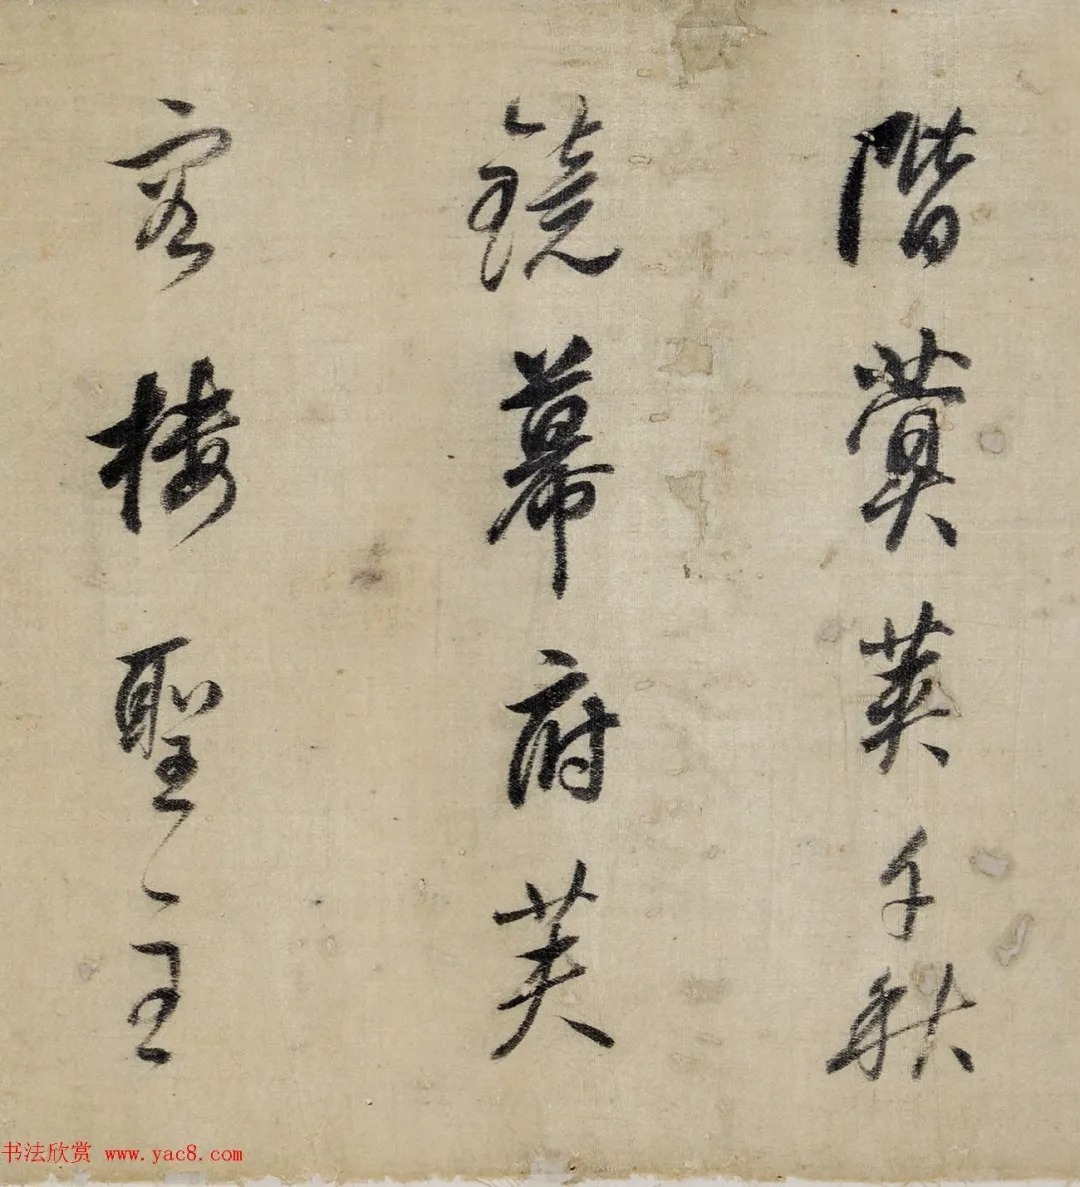 階蓂莢千秋
鏡幕府芙
容樓聖主
书法欣赏 www.yac8.com